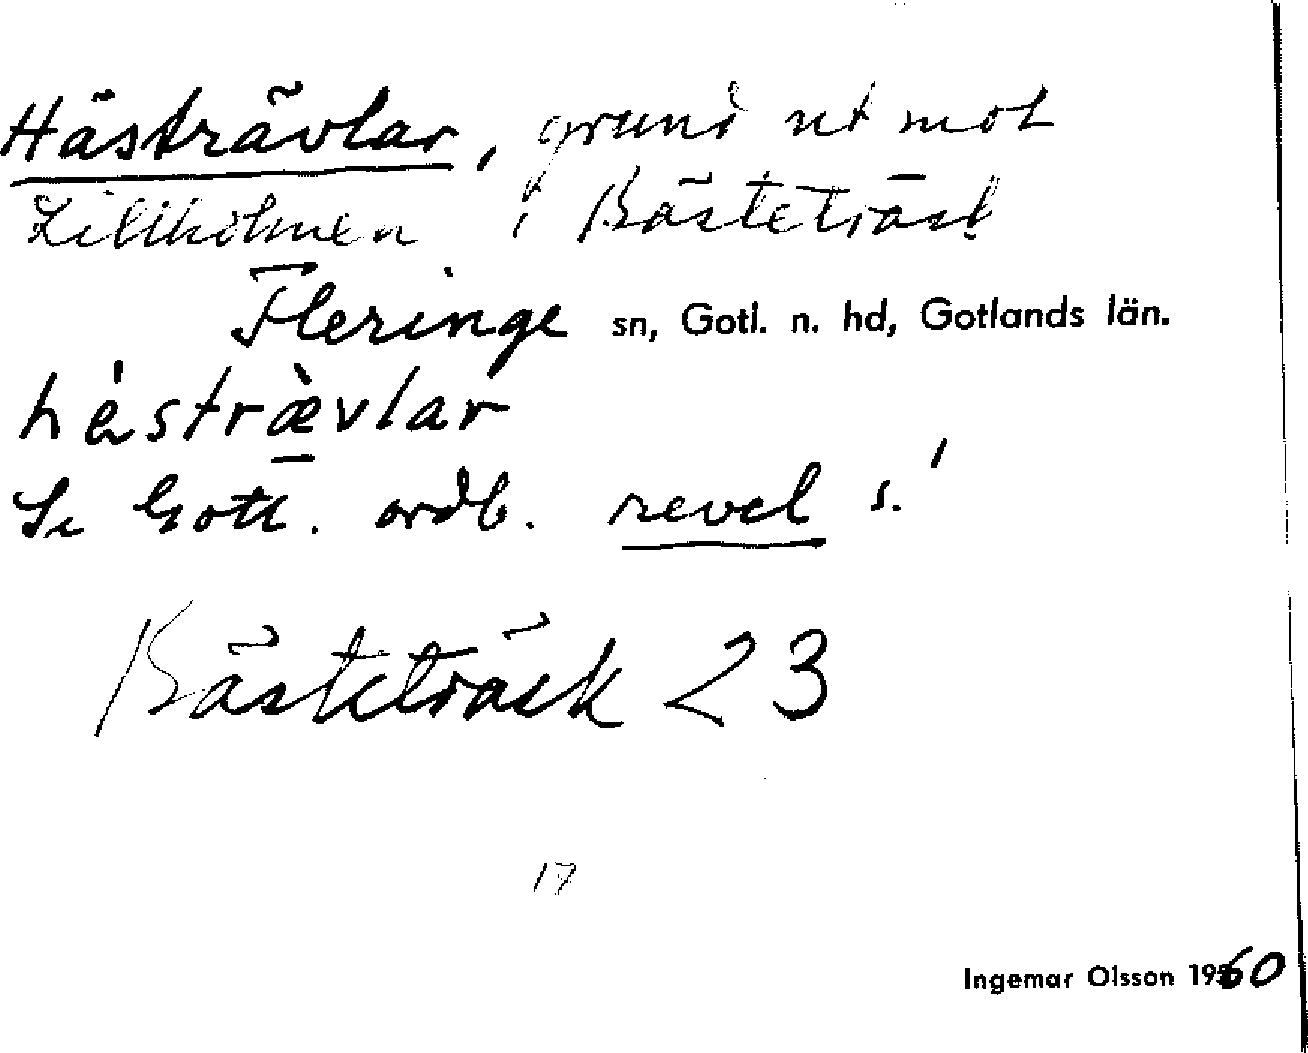 Hästrävlar, grund ut mot
Lillholmen i Bästeträsk
Fleringe sn, Gotl. n. hd, Gotlands län.
hèstrævlar
Se Gotl. ordb. revel s.!
Bästeträsk 23
17
Ingemar Olsson 1960